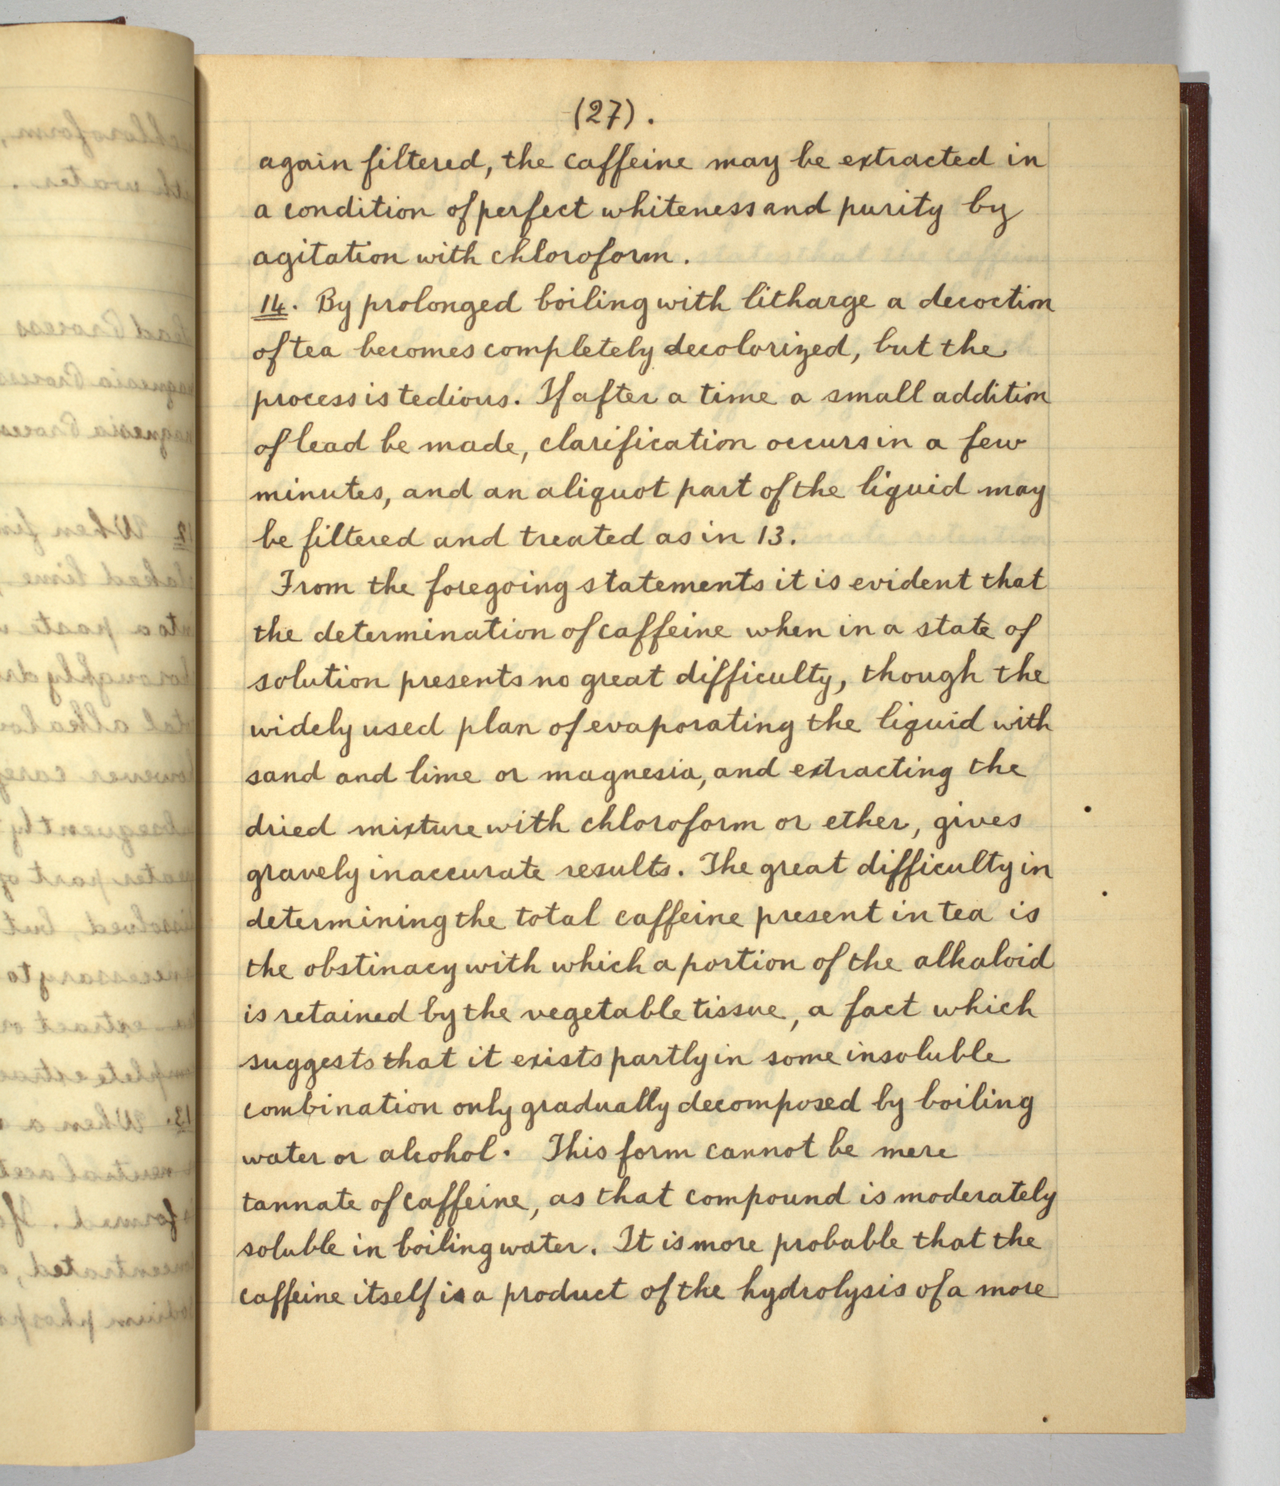 (27).
again filtered, the caffeine may be extracted in
a condition of perfect whiteness and purity by
agitation with chloroform.
14. By prolonged boiling with litharge a decoction
of tea becomes completely decolorized, but the
process is tedious. If after a time a small addition
of lead be made, clarification occurs in a few
minutes, and an aliquot part of the liquid may
be filtered and treated as in 13.
From the foregoing statements it is evident that
the determination of caffeine when in a state of
solution presents no great difficulty, though the
widely used plan of evaporating the liquid with
sand and lime or magnesia, and extracting the
dried mixture with chloroform or ether, gives
gravely inaccurate results. The great difficulty in
determining the total caffeine present in tea is
the obstinacy with which a portion of the alkaloid
is retained by the vegetable tissue, a fact which
suggests that it exists partly in some insoluble
combination only gradually decomposed by boiling
water or alcohol. This form cannot be mere
tannate of caffeine, as that compound is moderately
soluble in boiling water. It is more probable that the
caffeine itself is a product of the hydrolysis of a more